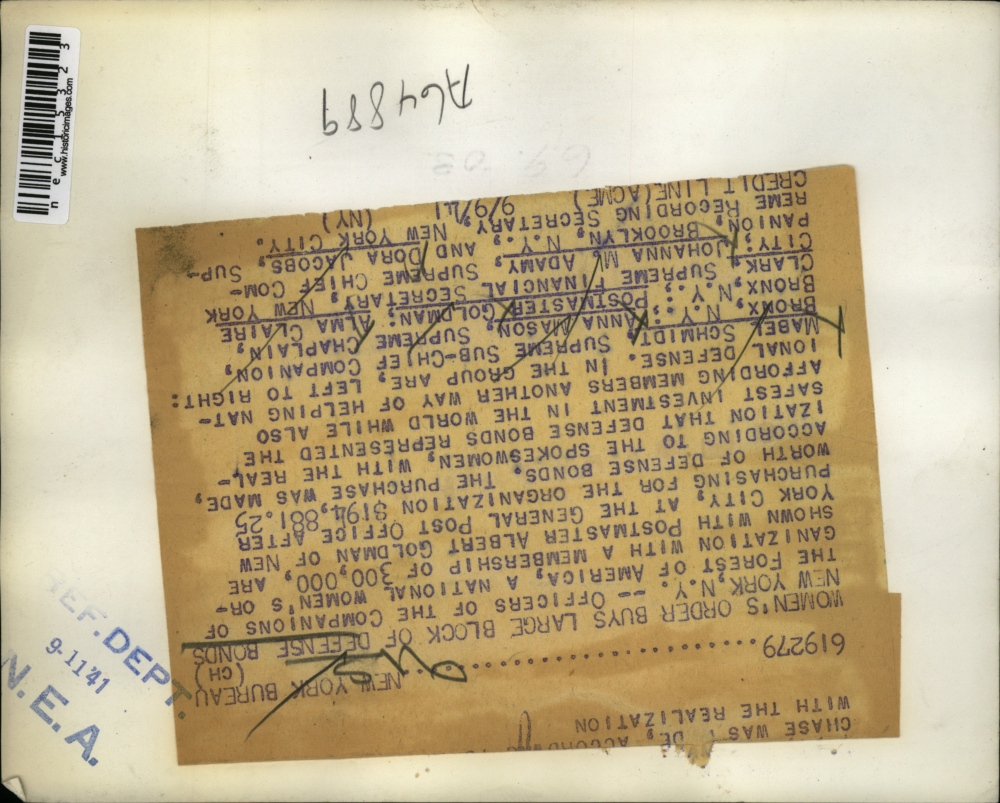 CHASE WAS
WITH THE REALIZATION
NEW YORK BUREAU
619279.......................... (CH)
WOMEN'S ORDER BUYS LARGE BLOCK OF DEFENSE BONDS
NEW YORK, N.Y. -- OFFICERS OF THE COMPANIONS OF
THE FOREST OF AMERICA, A NATIONAL WOMEN'S OR-
GANIZATION WITH A MEMBERSHIP OF 300,000, ARE
SHOWN WITH POSTMASTER ALBERT GOLDMAN OF NEW
YORK CITY, AT THE GENERAL POST OFFICE AFTER
PURCHASING FOR THE ORGANIZATION $194,881.25
WORTH OF DEFENSE BONDS. THE PURCHASE WAS MADE,
ACCORDING TO THE SPOKESWOMEN, WITH THE REAL-
IZATION THAT DEFENSE BONDS REPRESENTED THE
SAFEST INVESTMENT IN THE WORLD WHILE ALSO
AFFORDING MEMBERS ANOTHER WAY OF HELPING NAT-
IONAL DEFENSE. IN THE GROUP ARE, LEFT TO RIGHT:
MABEL SCHMIDT, SUPREME SUB-CHIEF COMPANION,
BRONX, N.Y.; ANNA MASON, SUPREME CHAPLAIN,
BRONX, N.Y.; POSTMASTER GOLDMAN: ALMA CLAIRE
CLARK, SUPREME FINANCIAL SECRETARY, NEW YORK
CITY; JOHANNA M. ADAMY, SUPREME CHIEF COM-
PANION, BROOKLYN, N.Y., AND DORA JACOBS, SUP-
REME RECORDING SECRETARY, NEW YORK CITY.
CREDIT LINE(ACME) 9/9/41 (NY)
A64889
REF. DEPT.
9-11'41
N.E.A.
nec15323
www.historicimages.com